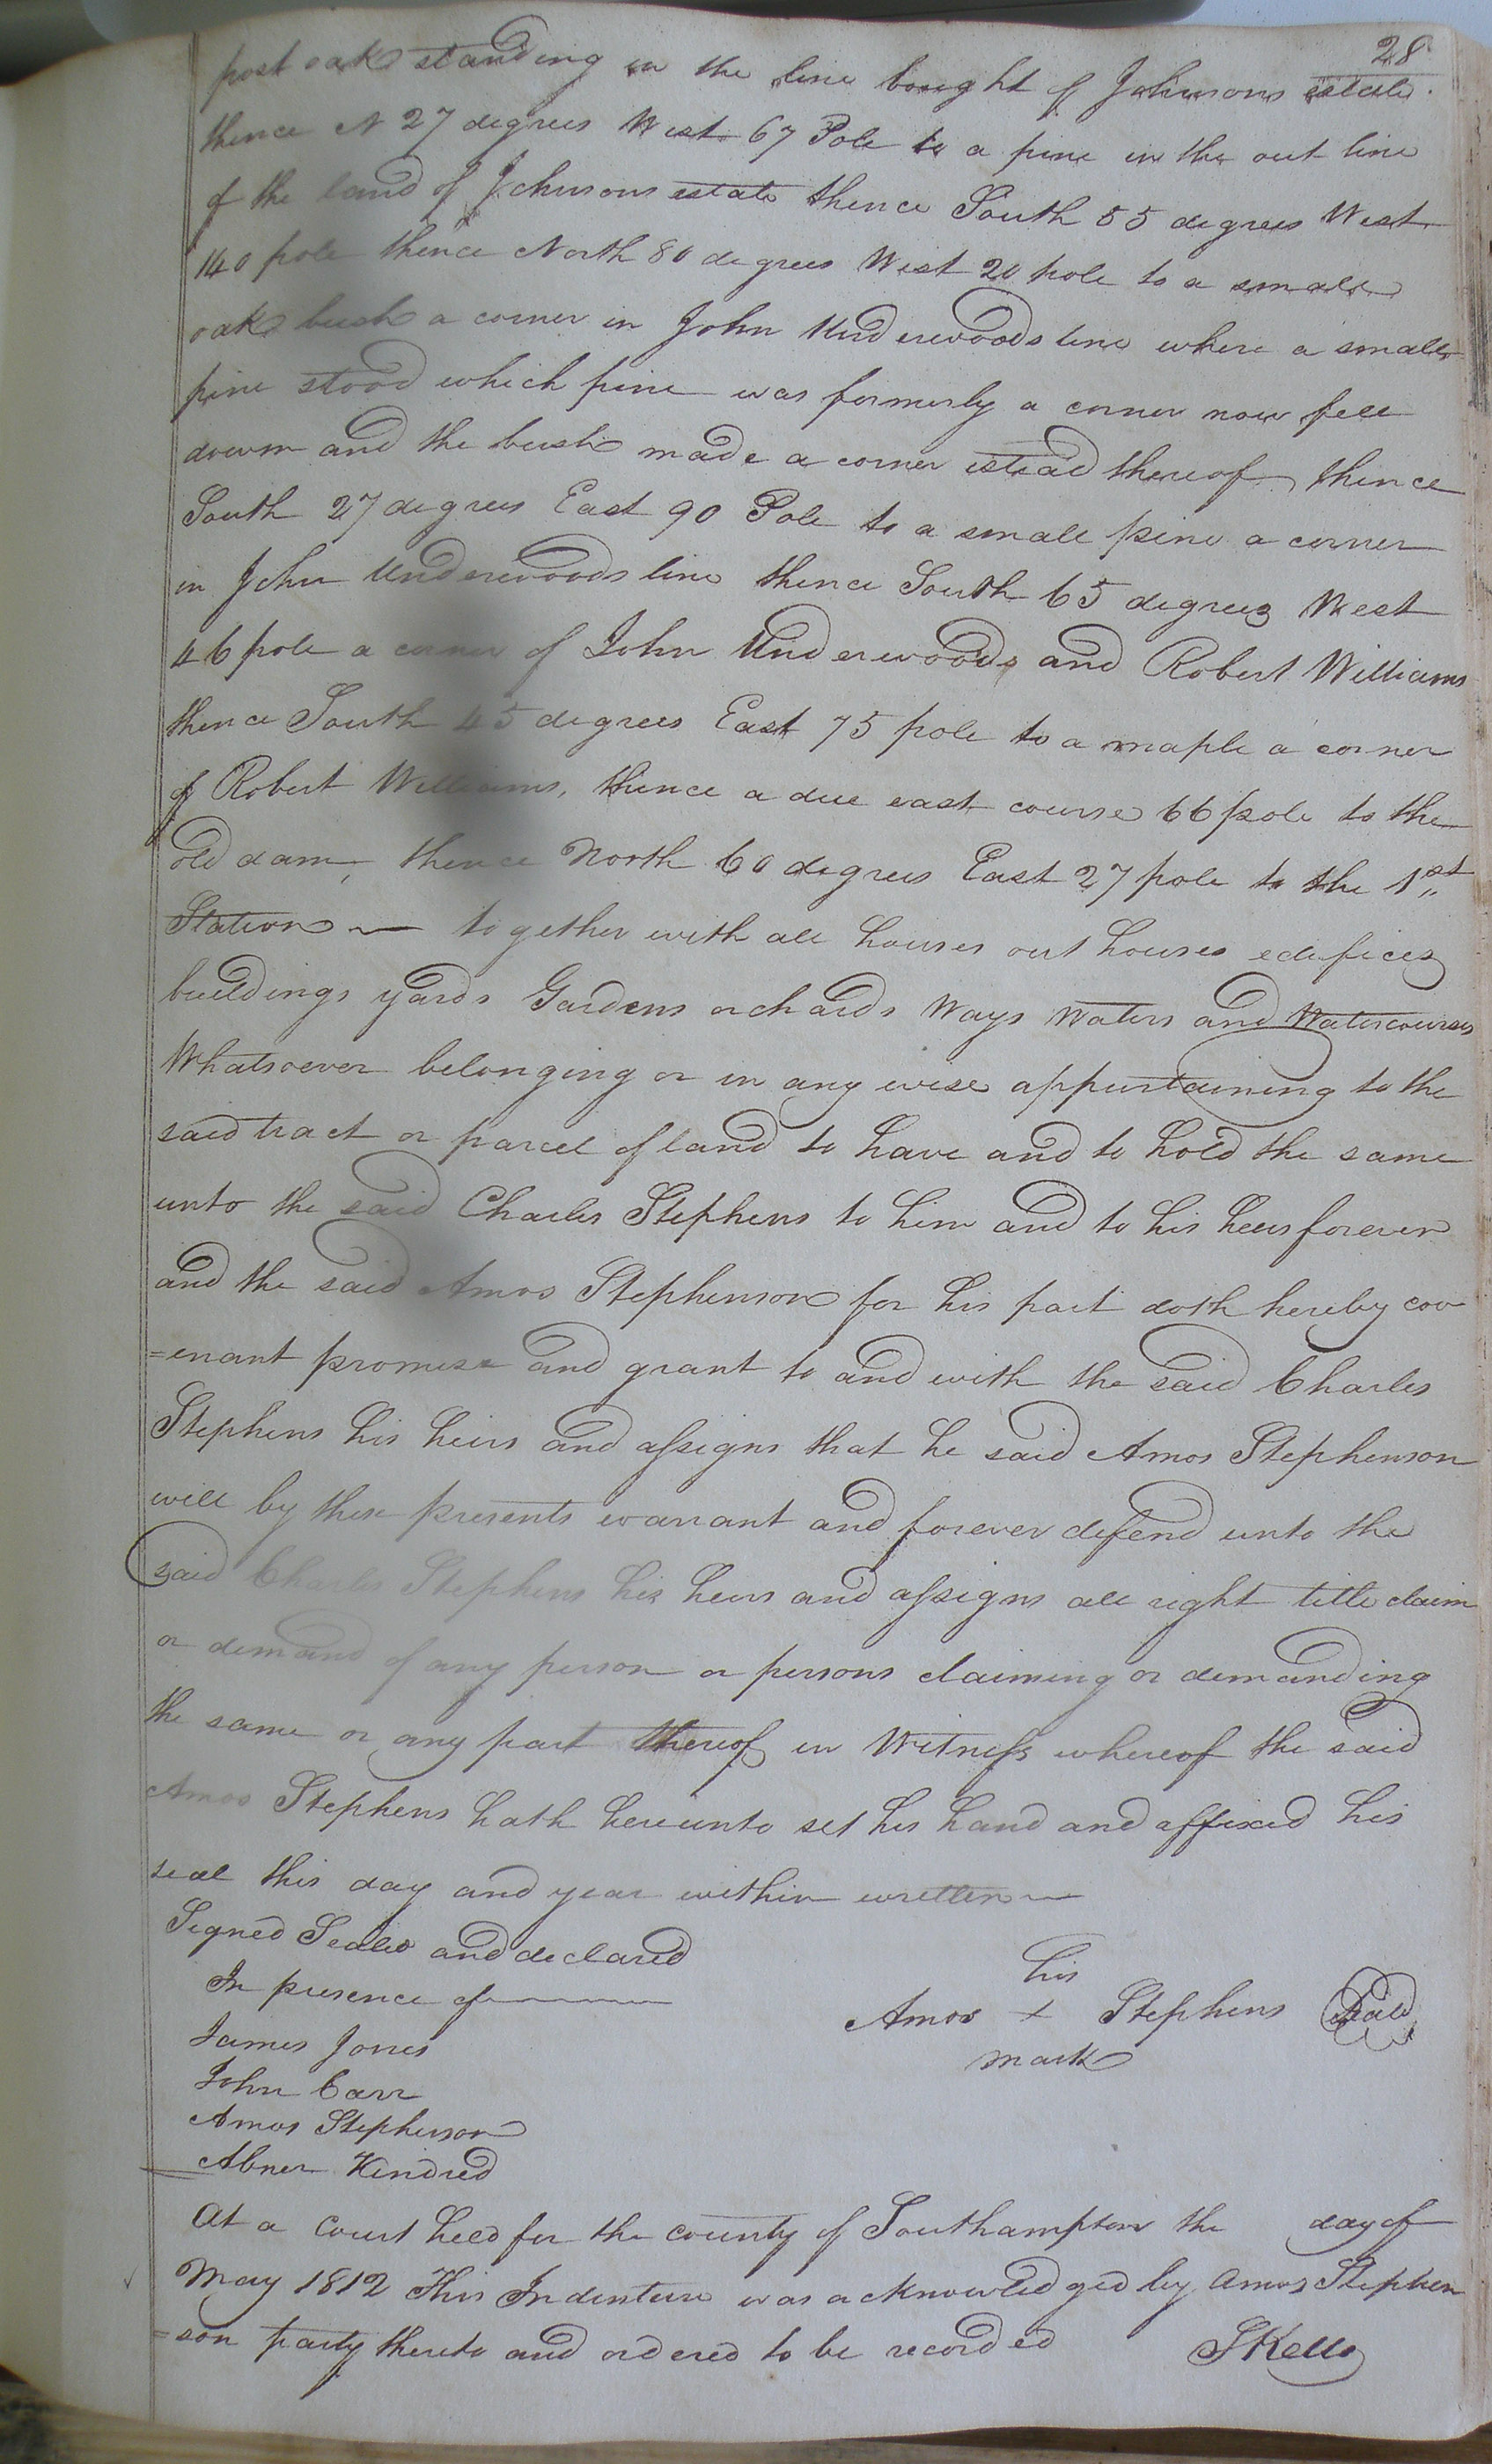 28
post oak standing in the line bought of Johnsons estate.
thence N 27 degrees West 67 Pole to a pine in the out line
of the land of Johnsons estate thence South 55 degrees West
140 pole thence North 80 degrees West 20 pole to a small
oak bush a corner in John Underwoods line where a small
pine stood which pine was formerly a corner now fell
down and the bush made a corner istead thereof, thence
South 27 degrees East 90 Pole to a small pine a corner
in John Underwoods line thence South 65 degrees West
46 pole a corner of John Underwoods and Robert Williams
thence South 45 degrees East 75 pole to a maple a corner
of Robert Williams, thence a due east course 66 pole to the
old dam, thence North 60 degrees East 27 pole to the 1st
Station — together with all houses out houses edifices
buildings yards Gardens orchards Ways Waters and Watercourses
Whatsoever belonging or in any wise appurtaining to the
said tract or parcel of land to have and to hold the same
unto the said Charles Stephens to him and to his heirs forever
and the said Amos Stephenson for his part doth hereby cov
=enant promise and grant to and with the said Charles
Stephens his heirs and assigns that he said Amos Stephenson
will by these presents warrant and forever defend unto the
said Charles Stephens his heirs and assigns all right title claim
or demand of any person or persons claiming or demanding
the same or any part thereof in Witness whereof the said
Amos Stephens hath hereunto set his hand and affixed his
seal this day and year within written —
Signed Sealed and declared
In presence of —
his
Amos + Stephens Seal
mark
James Jones
John Carr
Amos Stephenson
Abner Kindred
At a Court held for the county of Southampton the day of
May 1812 This Indenture was acknowledged by Amos Stephen
=son party thereto and ordered to be recorded SKello